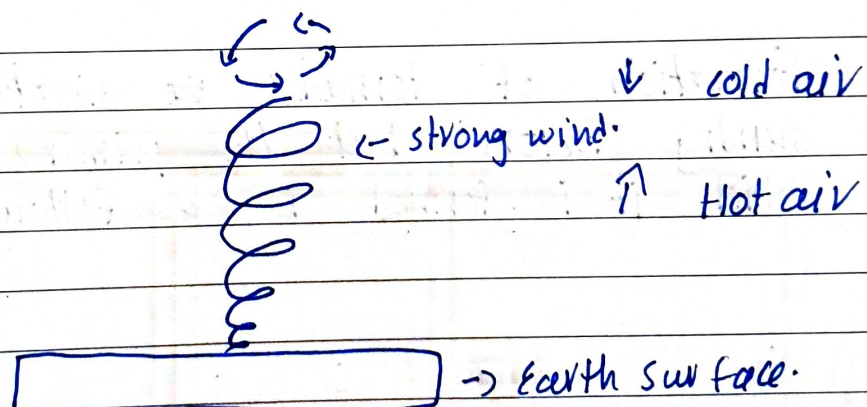 ↓ cold air
← strong wind.
↑ Hot air
→ Earth surface.